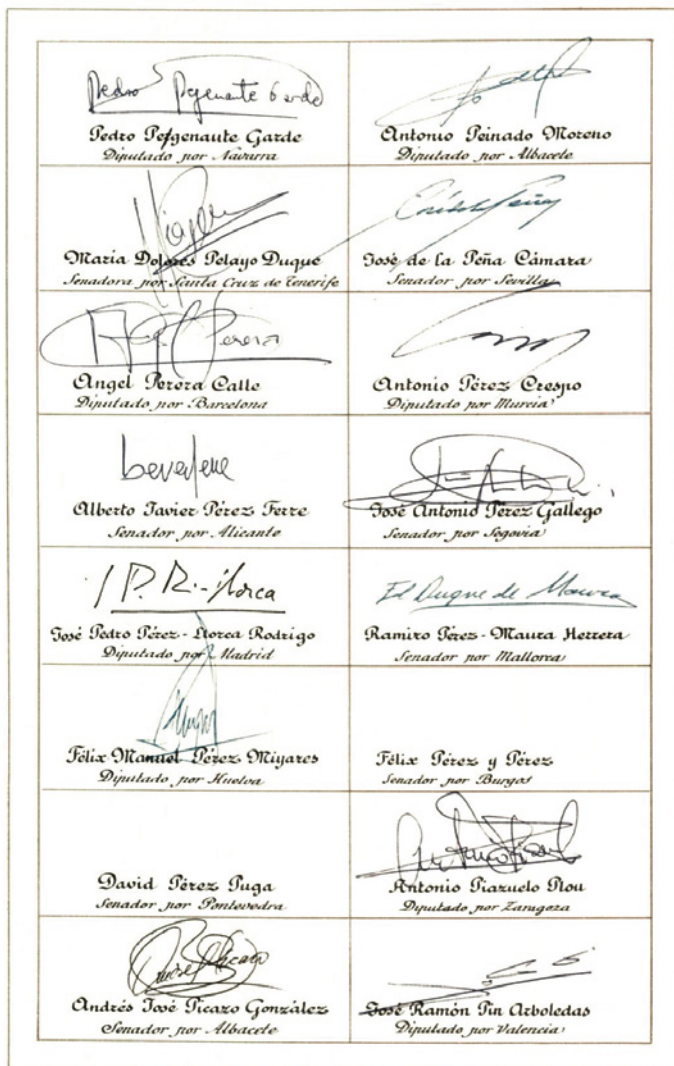 Pedro Pegenaute Garde
Pedro Pegenaute Garde
Diputado por Navarra
Antonio Peinado Moreno
Diputado por Albacete
María Dolores Pelayo Duque
Senadora por Santa Cruz de Tenerife
José de la Peña Cámara
Senador por Sevilla
Angel Perera
Angel Perera Calle
Diputado por Barcelona
Antonio Pérez Crespo
Diputado por Murcia
Alberto Javier Pérez Ferre
Senador por Alicante
José Antonio Pérez Gallego
Senador por Segovia
J P. R.-Llorca
José Pedro Pérez-Llorca Rodrigo
Diputado por Madrid
El Duque de Maura
Ramiro Pérez-Maura Herrera
Senador por Mallorca
Félix Manuel Pérez Miyares
Diputado por Huelva
Félix Pérez y Pérez
Senador por Burgos
David Pérez Puga
Senador por Pontevedra
Antonio Piazuelo Plou
Diputado por Zaragoza
Andrés José Picazo González
Senador por Albacete
José Ramón Pin Arboledas
Diputado por Valencia